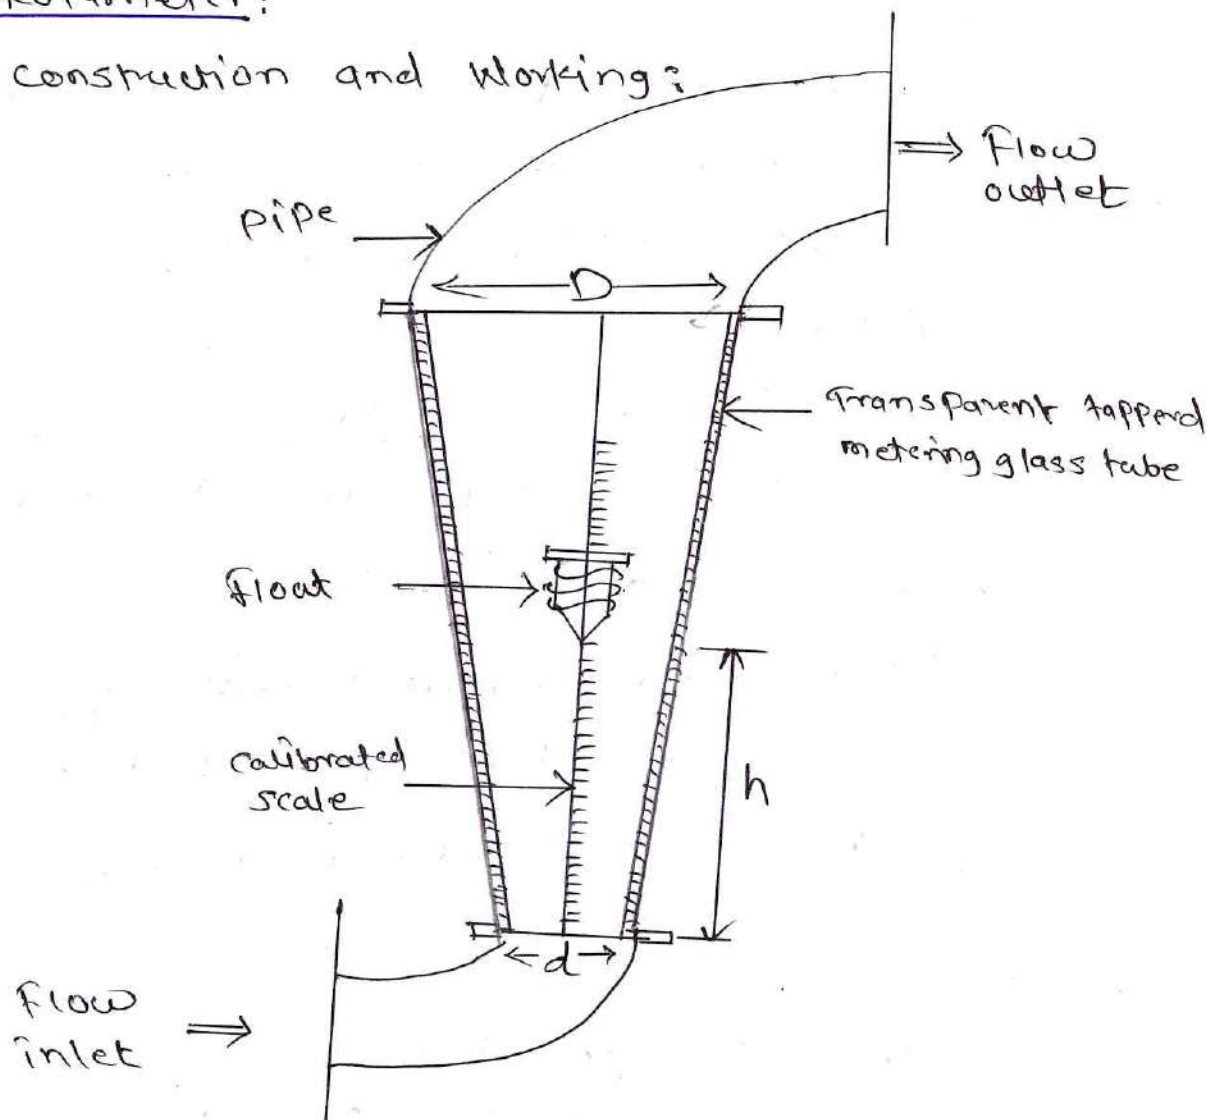 construction and working:
Flow
outlet
pipe
D
Transparent tapperd
metering glass tube
float
calibrated
scale
h
d
Flow
inlet